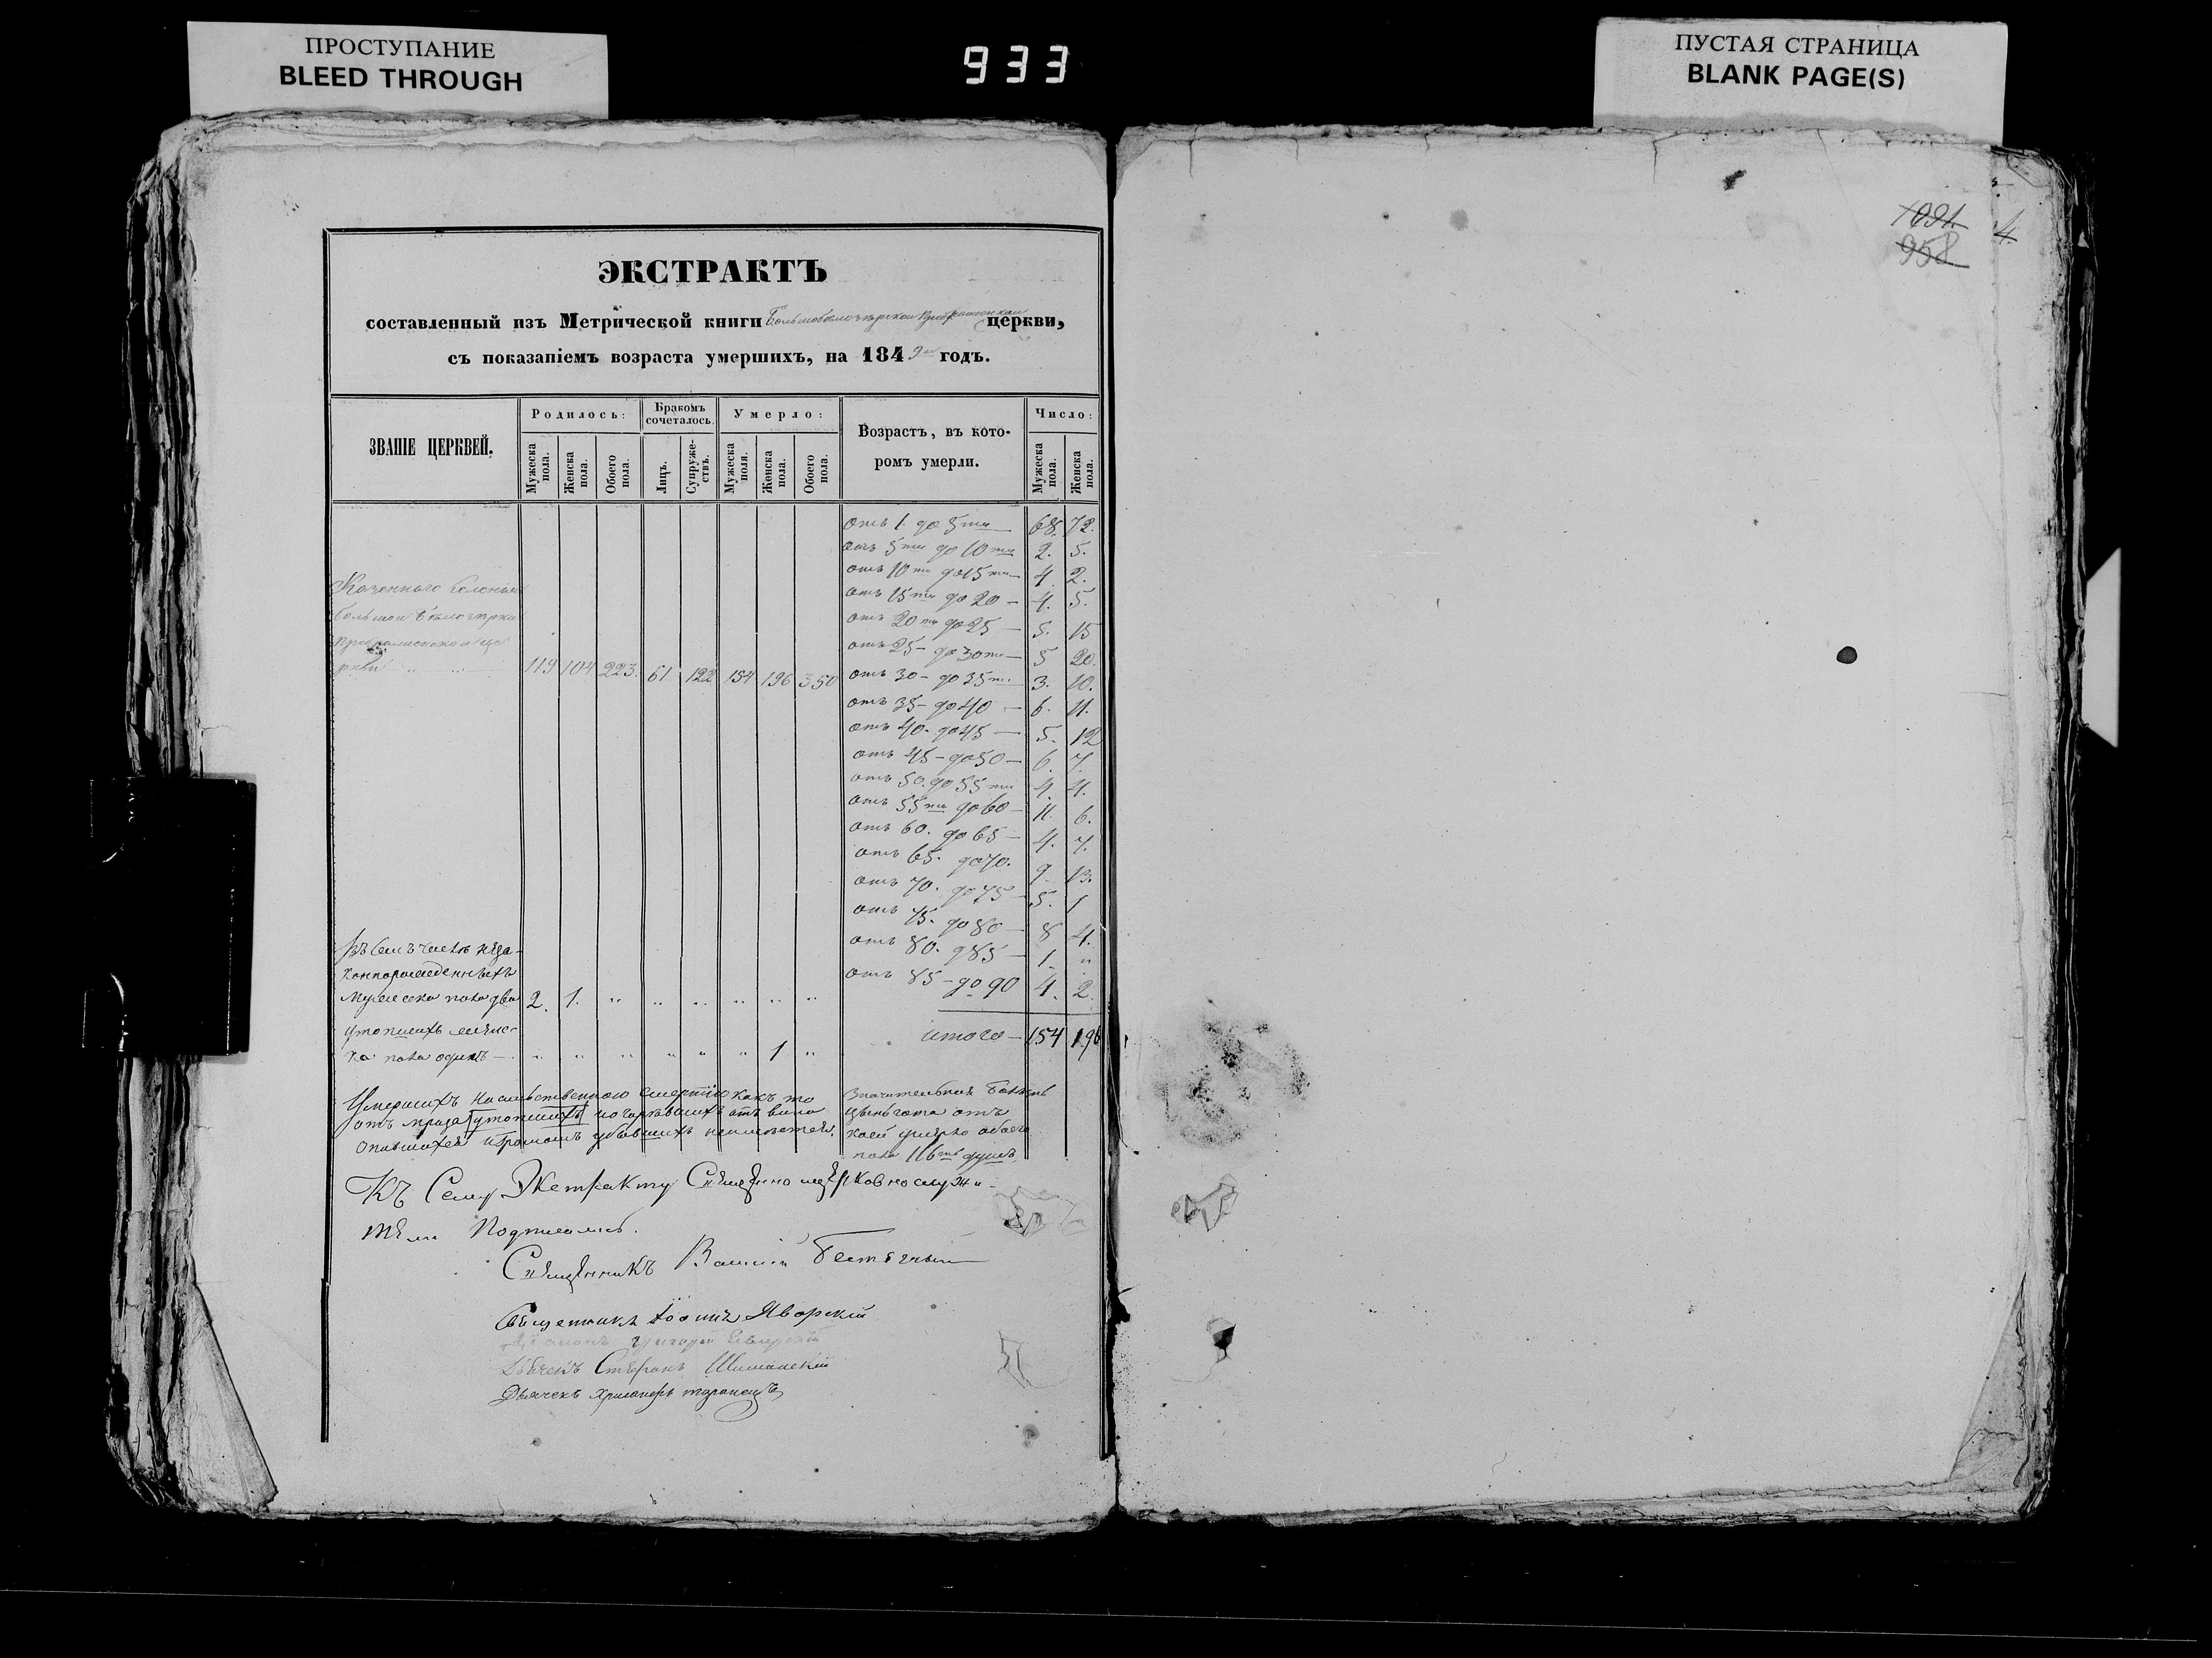 ПРОСТУПАНИЕ
BLEED THROUGH
933
ПУСТАЯ СТРАНИЦА
BLANK PAGE(S)
1091.
958
4.
ЭКСТРАКТЪ
составленный изъ Метрической книги церкви,
съ показаніемъ возраста умершихъ, на 1849 годъ.
ЗВАНІЕ ЦЕРКВЕЙ.
Родилось:
Мужеска пола.
Женска пола.
Обоего пола.
Бракомъ сочеталось.
Лицъ.
Супружествъ.
Умерло:
Мужеска пола.
Женска пола.
Обоего пола.
Возрастъ, въ которомъ умерли.
Число:
Мужеска пола.
Женска пола.
отъ 1. до 5ти 68. 72.
отъ 5ти до 10ти 2. 5.
отъ 10ти до 15ти 4. 2.
отъ 15ти до 20 4. 5.
отъ 20ти до 25 5. 15
отъ 25 до 30ти 5 20.
отъ 30 до 35ти 3. 10.
отъ 35 до 40 6. 11.
отъ 40. до 45 5. 12
отъ 45 до 50 6. 7.
отъ 50. до 55ти 4. 4.
отъ 55ти до 60 11. 6.
отъ 60. до 65 4. 7.
отъ 65. до 70. 9. 13.
отъ 70. до 75 5. 1
отъ 75. до 80 8 4.
отъ 80. д 85 1. „
отъ 85 до 90 4. 2.
итого 154 196
Казеннаго селенія
Большой Бѣлозерки
119 104 223. 61 122 154 196 350
Въ семъ числѣ неза-
коннорожденныхъ
Мужеска пола два 2. 1. „ „ „ „ „ „
утопшихъ
ка пола одинъ „ „ „ „ „ „ 1 „
Умершихъ насильственною смертію какъ то
отъ мраза утопшихъ отъ вина
опившихся и громомъ убившихъ неимѣется.
Значительная болѣзнь
цынгота отъ
коей умерло обоего
пола 116ть душъ.
Къ Сему Экстракту Священноцерковнослужи-
тели Подписались.
Священникъ
Священникъ Іоаннъ Яворскій
Григорій
Дьячекъ Стефанъ Шиманскій
Дьячекъ